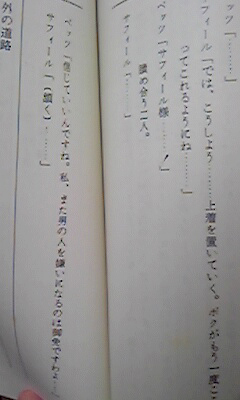 ベック「………」
サフィール「では、こうしよう………上着を置いていく。ボクがもう一度こ
ってこれるようにね………」
ベック「サフィール様………！」
腕め合う二人。
ベック「信じていいんですね。私、また男の人を嫌いになるのは御免ですわよ…
サフィール「（頷く）………」
外の道路